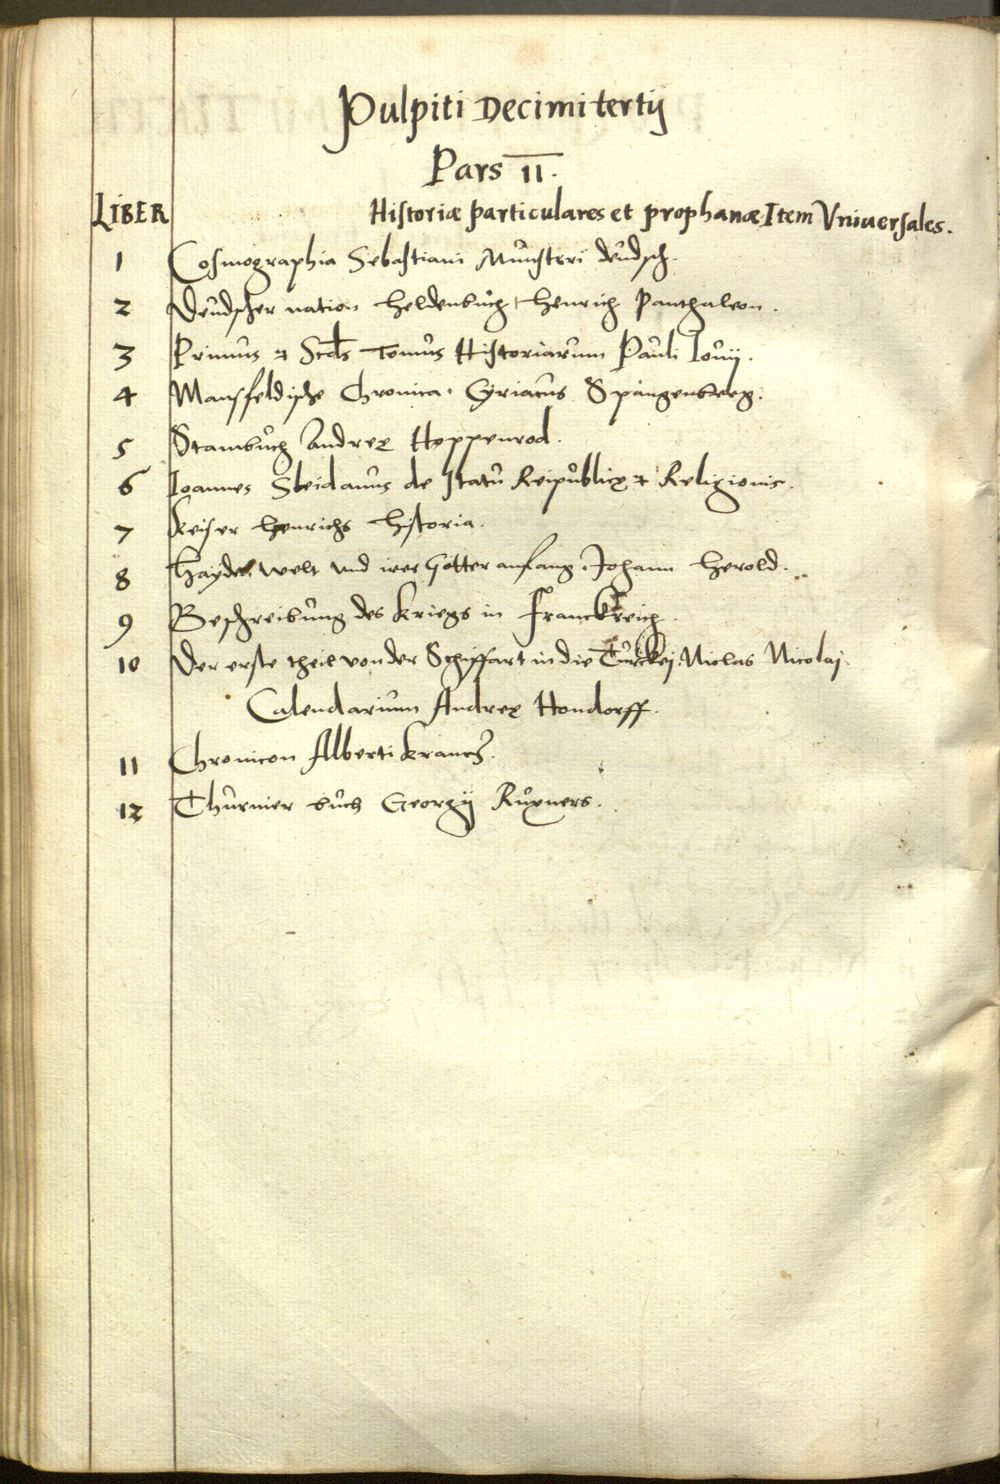 Pulpiti Decimitertij
Pars II.
LIBER Historiæ particulares et prophanæ Item Vniuersales.
1 Cosmographia Sebastiani Munsteri deudsch.
2 Deudscher nation Heldenbuch Henrich Panthaleon.
3 Primus et Scds Tomus Historiarum Pauli Iouij.
4 Mansfeldische Chronica. Cyriacus Spangenberg.
5 Stambuch Andreæ Hoppenrod.
6 Ioannes Sleidanus de statu Reipublicæ et Religionis.
7 Keiser Henrichs historia.
8 Hayden welt vnd irer Götter anfang. Johann Herold.
9 Beschreibung des Kriegs in Franckreich.
10 Der erste theil von der Schiffart in die Türckej. Niclas Nicolaj.
Calendarium Andreæ Hondorff.
11 Chronicon Alberti Krantz.
12 Thurnier buch Georgij Ruxners.